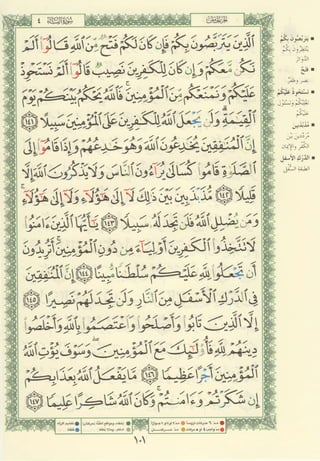 سورة النساء ٤
الَّذِينَ يَتَرَبَّصُونَ بِكُمْ فَإِن كَانَ لَكُمْ فَتْحٌ مِّنَ اللَّهِ قَالُوا أَلَمْ
نَكُن مَّعَكُمْ وَإِن كَانَ لِلْكَٰفِرِينَ نَصِيبٌ قَالُوا أَلَمْ نَسْتَحْوِذْ
عَلَيْكُمْ وَنَمْنَعْكُم مِّنَ الْمُؤْمِنِينَ ۚ فَاللَّهُ يَحْكُمُ بَيْنَكُمْ يَوْمَ
الْقِيَٰمَةِ ۗ وَلَن يَجْعَلَ اللَّهُ لِلْكَٰفِرِينَ عَلَى الْمُؤْمِنِينَ سَبِيلًا ١٤١
إِنَّ الْمُنَٰفِقِينَ يُخَٰدِعُونَ اللَّهَ وَهُوَ خَٰدِعُهُمْ وَإِذَا قَامُوا إِلَى
الصَّلَوٰةِ قَامُوا كُسَالَىٰ يُرَاءُونَ النَّاسَ وَلَا يَذْكُرُونَ اللَّهَ إِلَّا
قَلِيلًا ١٤٢ مُّذَبْذَبِينَ بَيْنَ ذَٰلِكَ لَا إِلَىٰ هَٰؤُلَاءِ وَلَا إِلَىٰ هَٰؤُلَاءِ ۚ
وَمَن يُضْلِلِ اللَّهُ فَلَن تَجِدَ لَهُ سَبِيلًا ١٤٣ يَٰأَيُّهَا الَّذِينَ ءَامَنُوا
لَا تَتَّخِذُوا الْكَٰفِرِينَ أَوْلِيَاءَ مِن دُونِ الْمُؤْمِنِينَ ۚ أَتُرِيدُونَ
أَن تَجْعَلُوا لِلَّهِ عَلَيْكُمْ سُلْطَٰنًا مُّبِينًا ١٤٤ إِنَّ الْمُنَٰفِقِينَ
فِي الدَّرْكِ الْأَسْفَلِ مِنَ النَّارِ وَلَن تَجِدَ لَهُمْ نَصِيرًا ١٤٥
إِلَّا الَّذِينَ تَابُوا وَأَصْلَحُوا وَاعْتَصَمُوا بِاللَّهِ وَأَخْلَصُوا
دِينَهُمْ لِلَّهِ فَأُولَٰئِكَ مَعَ الْمُؤْمِنِينَ ۖ وَسَوْفَ يُؤْتِ اللَّهُ
الْمُؤْمِنِينَ أَجْرًا عَظِيمًا ١٤٦ مَّا يَفْعَلُ اللَّهُ بِعَذَابِكُمْ
إِن شَكَرْتُمْ وَءَامَنتُمْ ۚ وَكَانَ اللَّهُ شَاكِرًا عَلِيمًا ١٤٧
١٠١
يَتَرَبَّصُونَ بِكُمْ
فَتْحٌ
نَسْتَحْوِذْ عَلَيْكُمْ
مُذَبْذَبِينَ
الدَّرْكِ الْأَسْفَلِ